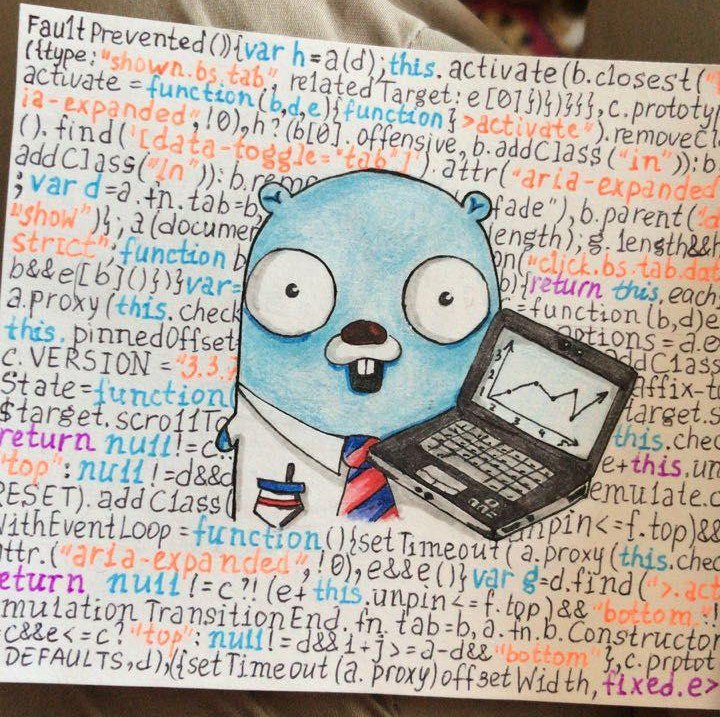 FaultPrevented()){var h=a(d);this.activate(b.closest("
({type:"shown.bs.tab", relatedTarget:e[0]})})}}},c.prototy
activate=function(b,d,e){function}>activate").removeCl
ia-expanded",!0),h?(b[0].offensive,b.addClass("in")):b
().find('[data-toggle="tab"]').attr("aria-expanded
addClass("in")):b.remo fade"),b.parent(
;var d=a.fn.tab=b length);g.length&&
"show")};a(documen on("click.bs.tab.dat
strict";function b b){return this.each
b&&e[b]()})}var= =function(b,d)e
a.proxy(this.check options=a.e
this.pinnedOffset ddClass
C.VERSION="3.3.7 affix-t
State=function target.s
$target.scrollTo this.chec
return null!=c e+this.un
"top":null!=d&&c emulate.c
RESET).addClass( npin<=f.top)&&
WithEventLoop=function(){setTimeout(a.proxy(this.chec
attr.("aria-expanded",!0),e&&e()}var g=d.find(">.act
eturn null!=c?!(e+this.unpin<=f.top)&&"bottom"
mulation TransitionEnd.fn.tab=b,a.fn.b.Constructo
=c&&e<=c?"top":null!=d&&i+j>=a-d&&"bottom"},c.prptot
DEFAULTS,d),({setTimeout(a.proxy)offsetWidth,fixed.e>
3
2
1 2 3 4 5